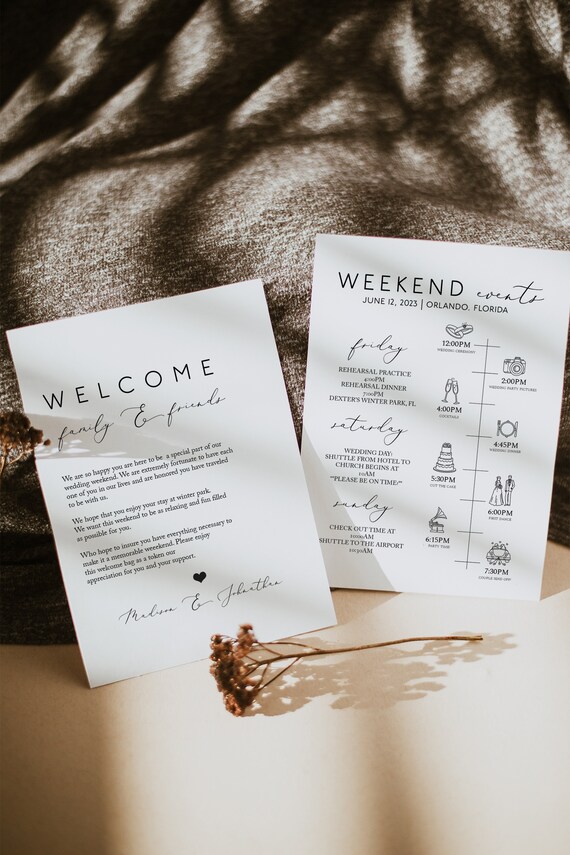 WELCOME
family & friends
We are so happy you are here to be a special part of our
wedding weekend. We are extremely fortunate to have each
one of you in our lives and are honored you have traveled
to be with us.
We hope that you enjoy your stay at winter park.
We want this weekend to be as relaxing and fun filled
as possible for you.
Who hope to insure you have everything necessary to
make it a memorable weekend. Please enjoy
this welcome bag as a token our
appreciation for you and your support.
Madison & Johnathan
WEEKEND events
JUNE 12, 2023 | ORLANDO, FLORIDA
friday
REHEARSAL PRACTICE
4:00PM
REHEARSAL DINNER
7:00PM
DEXTER'S WINTER PARK, FL
saturday
WEDDING DAY:
SHUTTLE FROM HOTEL TO
CHURCH BEGINS AT
10AM
**PLEASE BE ON TIME!**
sunday
CHECK OUT TIME AT
10:00AM
SHUTTLE TO THE AIRPORT
10:30AM
12:00PM
WEDDING CEREMONY
2:00PM
WEDDING PARTY PICTURES
4:00PM
COCKTAILS
4:45PM
WEDDING DINNER
5:30PM
CUT THE CAKE
6:00PM
FIRST DANCE
6:15PM
PARTY TIME
7:30PM
COUPLE SEND OFF